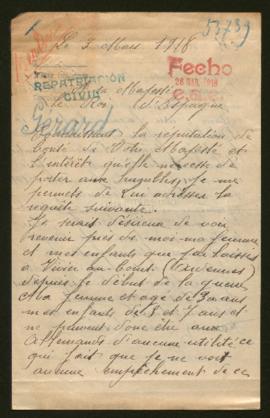 53739
Le 3 Mars 1918
Fecho
26 MAR. 1918
REPATRIACIÓN
CIVIL
Sa Majesté
Roi d'Espagne
Gerard
Connaissant la réputation de
bonté de Votre Majesté et
l'intérêt qu'elle ne cesse de
porter aux humbles, je me
permets de Lui adresser la
requête suivante.
Je serais désireux de voir
revenir près de moi ma femme
et mes enfants que j'ai laissés
à Vivier au-Court (Ardennes)
depuis le début de la guerre
Ma femme est agée de 30 ans
mes enfants de 8 et 7 ans et
ne peuvent donc être aux
Allemands d'aucune utilité ce
qui fait que je ne vois
aucun empêchement de ce